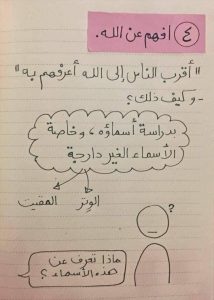 ٤ افهم عن الله.
"أقرب الناس إلى الله أعرفهم به"
- وكيف ذلك؟
بدراسة أسماؤه، وخاصة
الأسماء الغير دارجة
الوتر
المقيت
؟
ماذا تعرف عن
هذه الأسماء؟